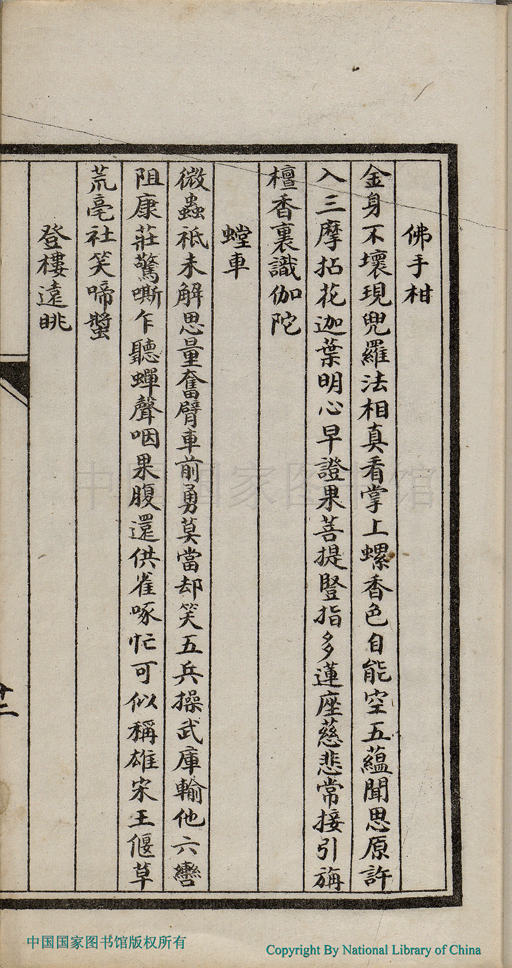 佛手柑
金身不壞現兜羅法相真看掌上螺香色自能空五蘊聞思原許
入三摩拈花迦葉明心早證果菩提豎指多蓮座慈悲常接引旃
檀香裏識伽陀
螳車
微蟲祗未解思量奮臂車前勇莫當却笑五兵操武庫輸他六轡
阻康莊驚嘶乍聽蟬聲咽果腹還供雀啄忙可似稱雄宋王偃草
荒亳社笑啼螿
登樓遠眺
廿二
中国国家图书馆
中国国家图书馆版权所有
Copyright By National Library of China